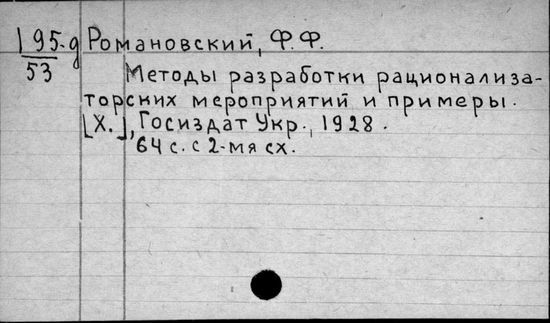 I 95-д Романовский, Ф.Ф.
53
Методы разработки рационализа-
торских мероприятий и примеры.
[Х.], Госиздат Укр., 1928.
64 с. с 2-мя сх.